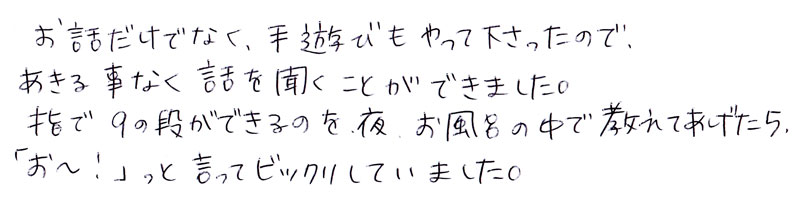 お話だけでなく、手遊びもやって下さったので、
あきる事なく話を聞くことができました。
指で9の段ができるのを、夜、お風呂の中で教えてあげたら、
「お～!」っと言ってビックリしていました。